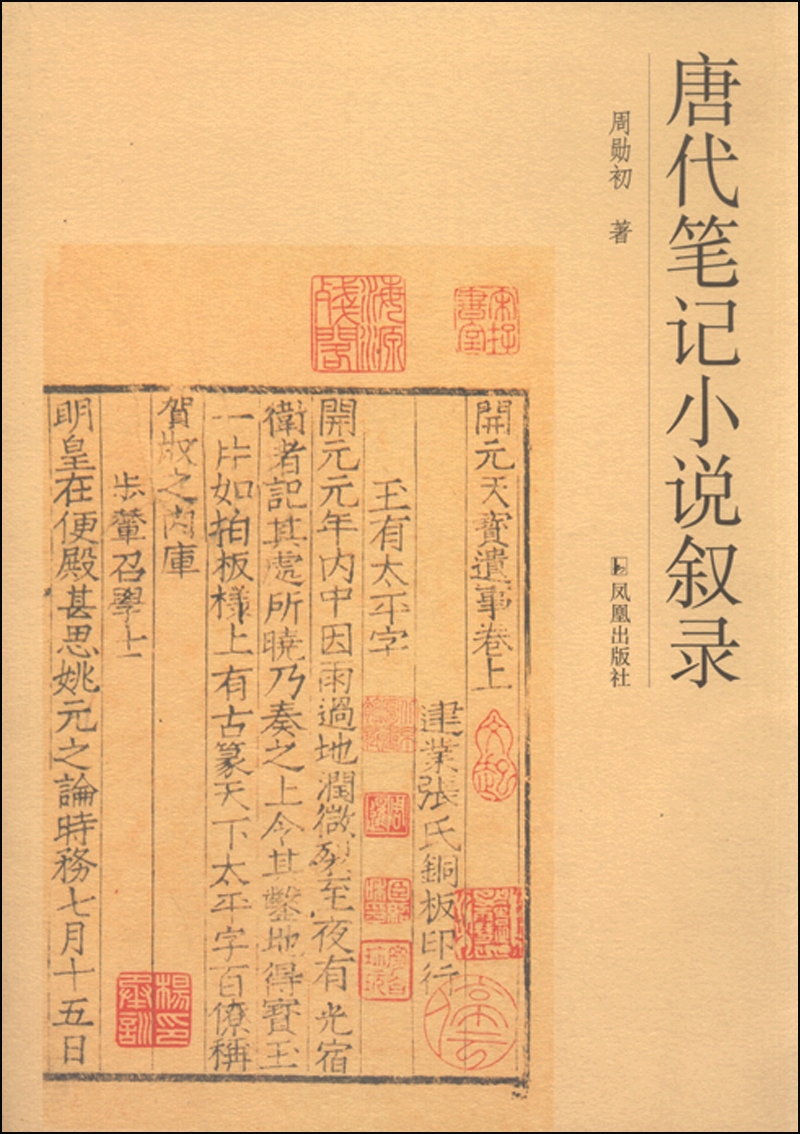 唐代笔记小说叙录
周勋初 著
凤凰出版社
宋存書室
海源殘閣
開元天寶遺事卷上
建業張氏銅板印行
王有太平字
開元元年内中因雨過地潤微裂至夜有光宿
衛者記其處所曉乃奏之上令其鑿地得寶玉
一片如拍板樣上有古篆天下太平字百僚稱
賀收之内庫
步輦召學士
明皇在便殿甚思姚元之論時務七月十五日
楊印承訓